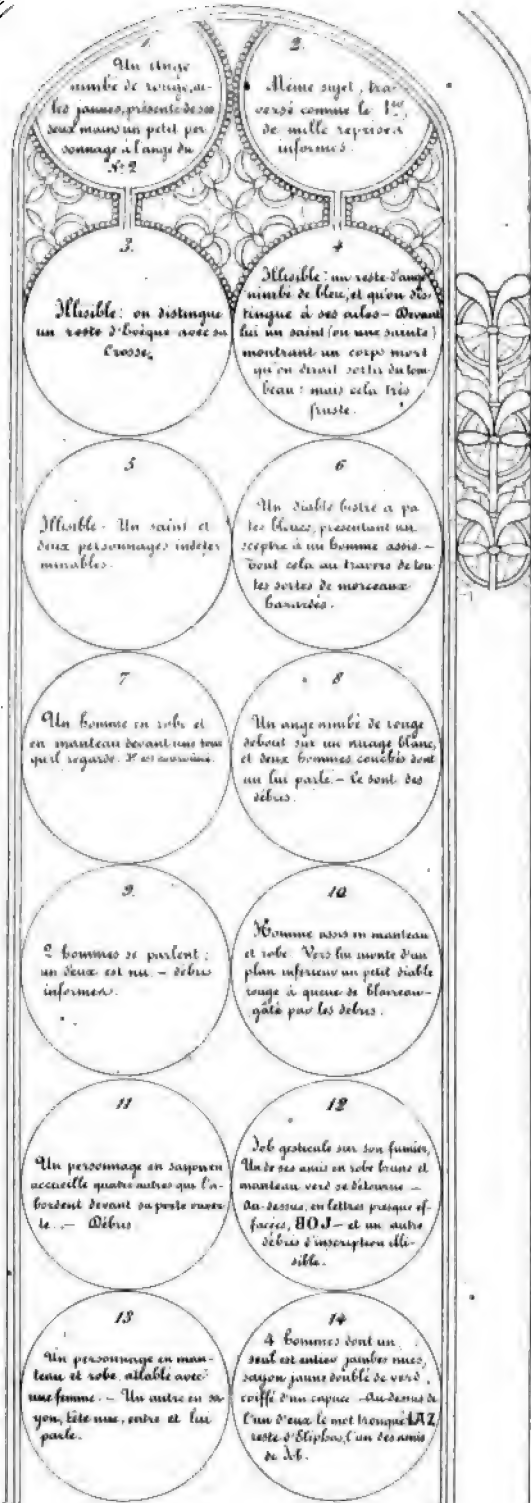 1.
Un Ange
nimbé de rouge, ai-
les jaunes, présente de ses
deux mains un petit per-
sonnage à l'ange du
N° 2
2.
Même sujet, tra-
versé comme le 1er
de mille reprises
informes.
3.
Illisible : on distingue
un reste d'évêque avec sa
Crosse.
4
Illisible : un reste d'ange
nimbé de bleu, et qu'on dis-
tingue à ses ailes – Devant
lui un saint (ou une sainte)
montrant un corps mort
qu'on dirait sortir du tom-
beau : mais cela très
fruste.
5
Illisible - Un saint et
deux personnages indéter
minables.
6
Un diable bistre a pa
tes bleues, présentant un
sceptre à un homme assis. –
Tout cela au travers de tou
tes sortes de morceaux
hasardés.
7
Un homme en robe et
en manteau devant une tour
qu'il regarde.
8
Un ange nimbé de rouge
debout sur un nuage blanc,
et deux hommes couchés dont
un lui parle. – Ce sont des
débris.
9.
2 hommes se parlent ;
un d'eux est nu. – débris
informes.
10
Homme assis en manteau
et robe. Vers lui monte d'un
plan inférieur un petit diable
rouge à queue de blaireau –
gâté par les débris.
11
Un personnage en sayon en
accueille quatre autres qui l'a-
bordent devant sa porte ouver-
te. – Débris
12
Job gesticule sur son fumier,
Un de ses amis en robe brune et
manteau verd se détourne –
Au-dessus, en lettres presque ef-
facées, BOJ – et un autre
débris d'inscription illi-
sible.
13
Un personnage en man-
teau et robe, attablé avec
une femme. – Un autre en sa-
yon, tête nue, entre et lui
parle.
14
4 hommes dont un
seul est entier jambes nues,
sayon jaune doublé de verd,
coiffé d'un capuce – Au-dessus de
l'un d'eux le mot tronqué LAZ
reste d'Eliphas, l'un des amis
de Job.